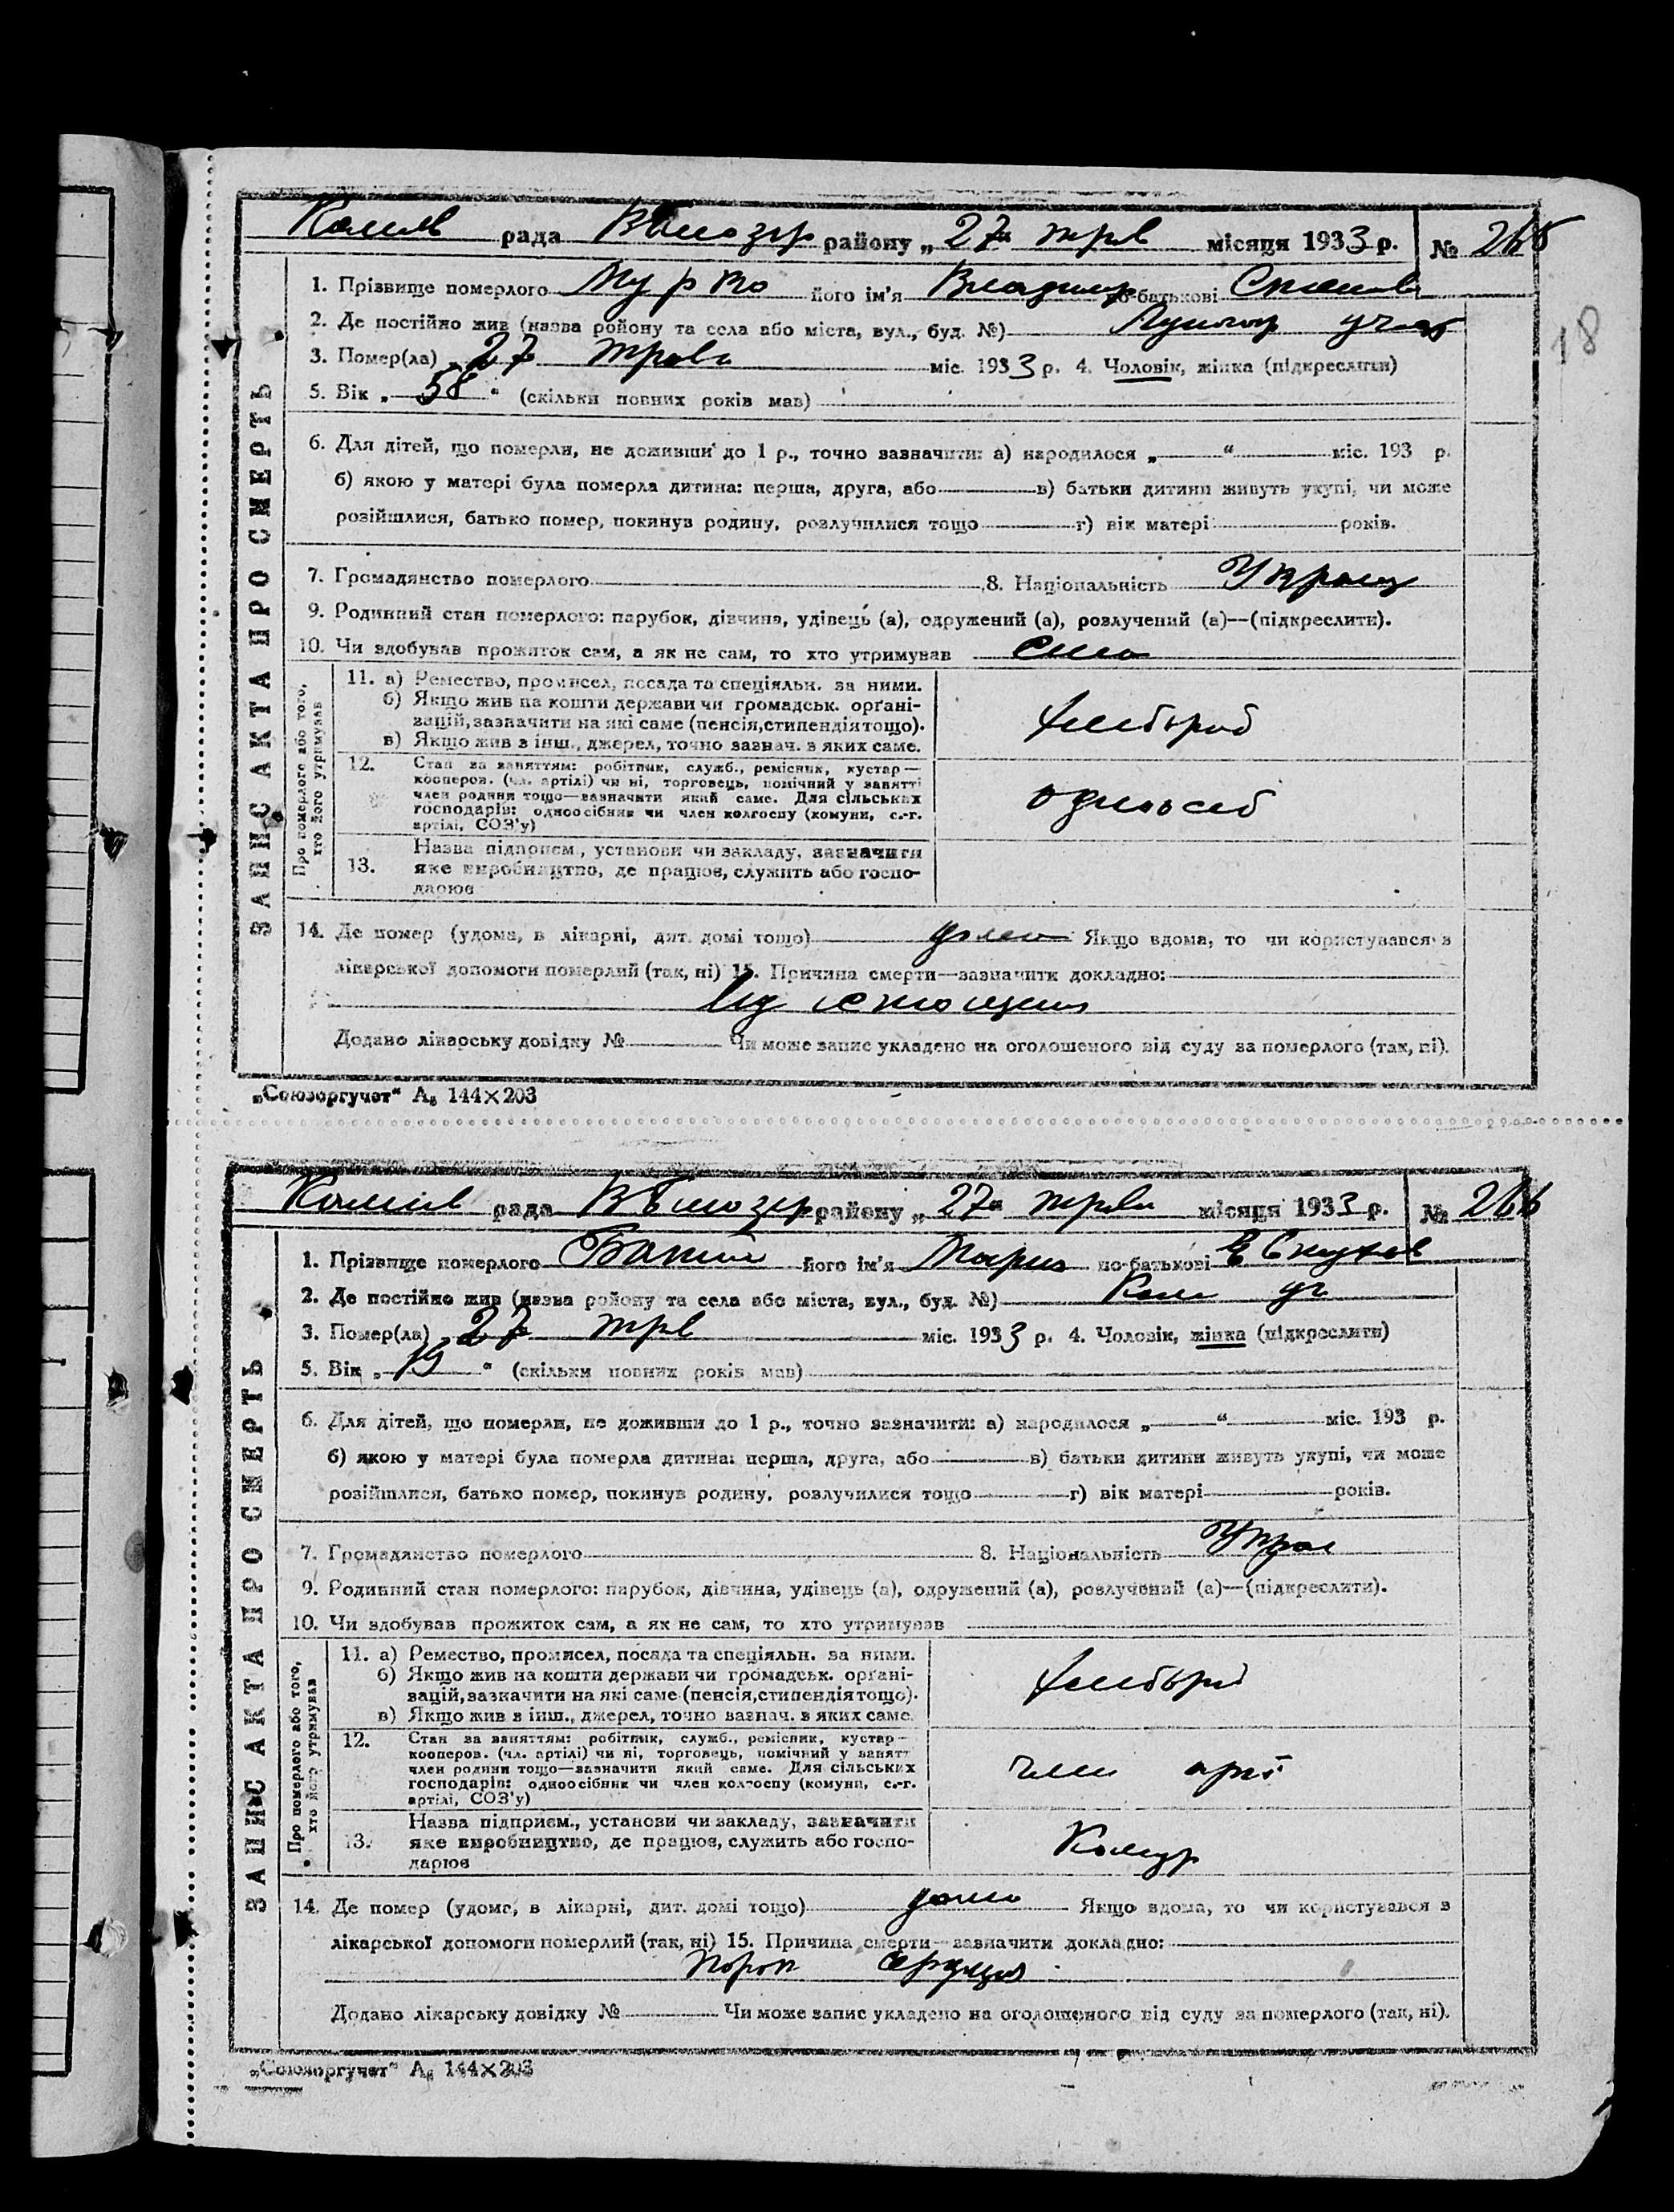 рада району „27“ трав місяця 1933 р. № 265
1. Прізвище померлого Мурко його ім'я Владимир по-батькові
2. Де постійно жив (назва ройону та села або міста, вул., буд. №)
3. Помер(ла) „27 трав міс. 1933 р. 4. Чоловік, жінка (підкреслити)
5. Вік „58“ (скільки повних років мав)
6. Для дітей, що померли, не доживши до 1 р., точно зазначити: а) народилося „ “ міс. 193 р.
б) якою у матері була померла дитина: перша, друга, або в) батьки дитини живуть укупі, чи може
розійшлися, батько помер, покинув родину, розлучилися тощо г) вік матері років.
7. Громадянство померлого 8. Національність Украц
9. Родинний стан померлого: парубок, дівчина, удівець (а), одружений (а), розлучений (а)—(підкреслити).
10. Чи здобував прожиток сам, а як не сам, то хто утримував
ЗАПИС АКТА ПРО СМЕРТЬ
Про померлого або того, хто його утримував
11. а) Ремество, промисел, посада та спеціяльн. за ними.
б) Якщо жив на кошти держави чи громадськ. органі-
зацій, зазначити на які саме (пенсія, стипендія тощо).
в) Якщо жив з інш., джерел, точно зазнач. з яких саме.
хлібороб
12. Стан за заняттям: робітник, служб., ремісник, кустар—
кооперов. (чл. артілі) чи ні, торговець, помічний у занятті
член родини тощо—зазначити який саме. Для сільських
господарів: одноосібник чи член колгоспу (комуни, с.-г.
артілі, СОЗ'у)
одноосіб
13. Назва підприєм., установи чи закладу, зазначити
яке виробництво, де працює, служить або госпо-
дарює
14. Де помер (удома, в лікарні, дит. домі тощо) дома Якщо вдома, то чи користувався з
лікарської допомоги померлий (так, ні) 15. Причина смерти—зазначити докладно:
Від істощения
Додано лікарську довідку № Чи може запис укладено на оголошеного від суду за померлого (так, ні).
„Союзоргучет“ А₆ 144×203
18
рада району „27“ трав місяця 1933 р. № 266
1. Прізвище померлого його ім'я Мария по-батькові
2. Де постійно жив (назва ройону та села або міста, вул., буд. №) Кам уч
3. Помер(ла) „27 трав міс. 1933 р. 4. Чоловік, жінка (підкреслити)
5. Вік „19“ (скільки повних років мав)
6. Для дітей, що померли, не доживши до 1 р., точно зазначити: а) народилося „ “ міс. 193 р.
б) якою у матері була померла дитина: перша, друга, або в) батьки дитини живуть укупі, чи може
розійшлися, батько помер, покинув родину, розлучилися тощо г) вік матері років.
7. Громадянство померлого 8. Національність Украс
9. Родинний стан померлого: парубок, дівчина, удівець (а), одружений (а), розлучений (а)—(підкреслити).
10. Чи здобував прожиток сам, а як не сам, то хто утримував
ЗАПИС АКТА ПРО СМЕРТЬ
Про померлого або того, хто його утримував
11. а) Ремество, промисел, посада та спеціяльн. за ними.
б) Якщо жив на кошти держави чи громадськ. органі-
зацій, зазначити на які саме (пенсія, стипендія тощо).
в) Якщо жив з інш., джерел, точно зазнач. з яких саме.
хлібороб
12. Стан за заняттям: робітник, служб., ремісник, кустар—
кооперов. (чл. артілі) чи ні, торговець, помічний у занятт
член родини тощо—зазначити який саме. Для сільських
господарів: одноосібник чи член колгоспу (комуни, с.-г.
артілі, СОЗ'у)
член арті
13. Назва підприєм., установи чи закладу, зазначити
яке виробництво, де працює, служить або госпо-
дарює
14. Де помер (удома, в лікарні, дит. домі тощо) дома Якщо вдома, то чи користувався з
лікарської допомоги померлий (так, ні) 15. Причина смерти—зазначити докладно:
Порок сердця
Додано лікарську довідку № Чи може запис укладено на оголошеного від суду за померлого (так, ні).
„Союзоргучет“ А₆ 144×203